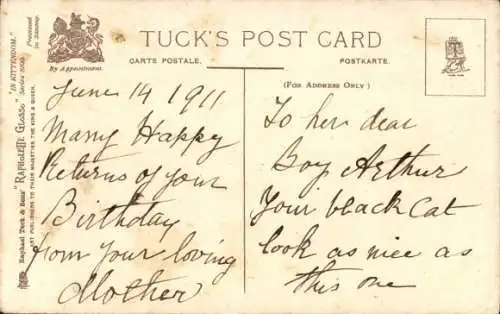 TUCK'S POST CARD
CARTE POSTALE.
POSTKARTE.
By Appointment.
(FOR ADDRESS ONLY)
June 14 1911
Many Happy
Returns of your
Birthday
from your loving
Mother
To her dear
Boy Arthur
Your black Cat
look as nice as
this one
Raphael Tuck & Sons' "RAPHOLETTE GLOSSO"
"IN KITTENDOM."
ART PUBLISHERS TO THEIR MAJESTIES THE KING & QUEEN.